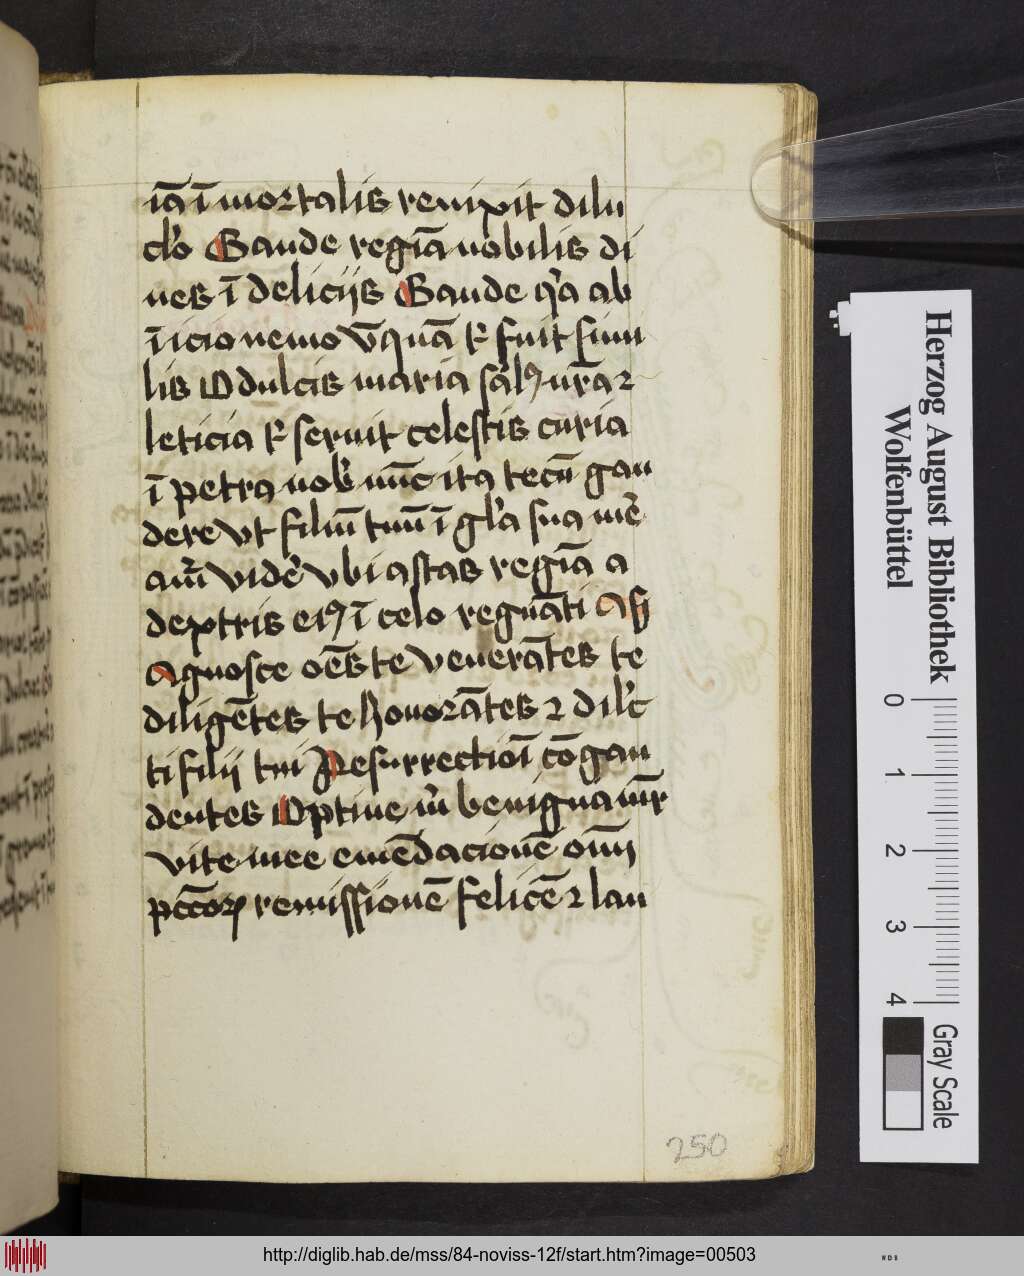 iā ī mortalis reuixit dilu
cl'o Gaude regīa nobilis di
ues ī deliciis Gaude q'a ab
īicio nemo v̄quā t' fuit simi
lis O dulcis maria sāl9 nr̄ar
leticia t' seruit celestis curia
ī petra nob' nūc ita tecū gau
dere vt filiū tuū ī gl'a sua mē
am̄ vidē vbi astas regīa a
dextris ei9 ī celo regnāti
Agnosce oēs te venerātes te
diligētes te honorātes ⁊ dil'c
ti filii tui Resurrectioī cōgau
dentes Optine m̄ benigna m̄r
vite mee emēdacionē oīm
pccor remissionē felicē ⁊ lau
250
Herzog August Bibliothek
Wolfenbüttel
0 1 2 3 4
Gray Scale
http://diglib.hab.de/mss/84-noviss-12f/start.htm?image=00503